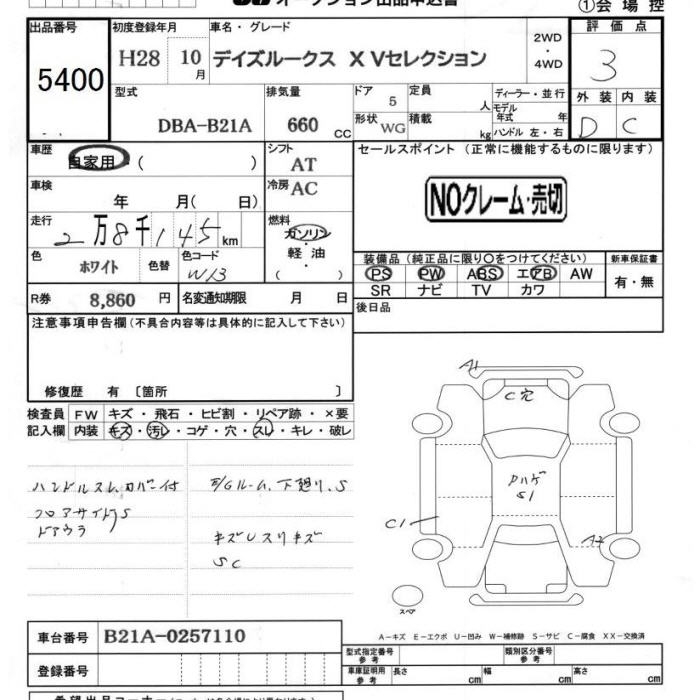 オークション出品申込書
①会場控
出品番号 初度登録年月 車名・グレード 2WD・4WD 評価点
5400 H28 10月 デイズルークス X Vセレクション 3
型式 排気量 ドア 定員 ディーラー・並行 外装 内装
DBA-B21A 660 CC 5 人 モデル年式 年 D C
形状 WG 積載 kg ハンドル 左・右
車歴 自家用 ( ) シフト AT セールスポイント (正常に機能するものに限ります)
車検 年 月( 日) 冷房 AC NOクレーム・売切
走行 2万8千145km 燃料 ガソリン・軽油・( )
色 ホワイト 色替 色コード W13
装備品 (純正品に限り○をつけてください) 新車保証書
PS PW ABS エアB AW 有・無
SR ナビ TV カワ
R券 8,860 円 名変通知期限 月 日 後日品
注意事項申告欄 (不具合内容等は具体的に記入して下さい)
修復歴 有 〔箇所 〕
検査員 FW キズ・飛石・ヒビ割・リペア跡・×要
記入欄 内装 キズ・汚レ・コゲ・穴・スレ・キレ・破レ
ハンドルスレ、カバー付 E/Gルーム、下廻り、S
フロアサイドS
ドアウラ キズUスリキズ
SC
A1
C穴
クハゲ
S1
C1
A2
スペア
A-キズ E-エクボ U-凹み W-補修跡 S-サビ C-腐食 XX-交換済
車台番号 B21A-0257110
登録番号
型式指定番号 参考 類別区分番号 参考
車庫証明用 参考 長さ cm 幅 cm 高さ cm